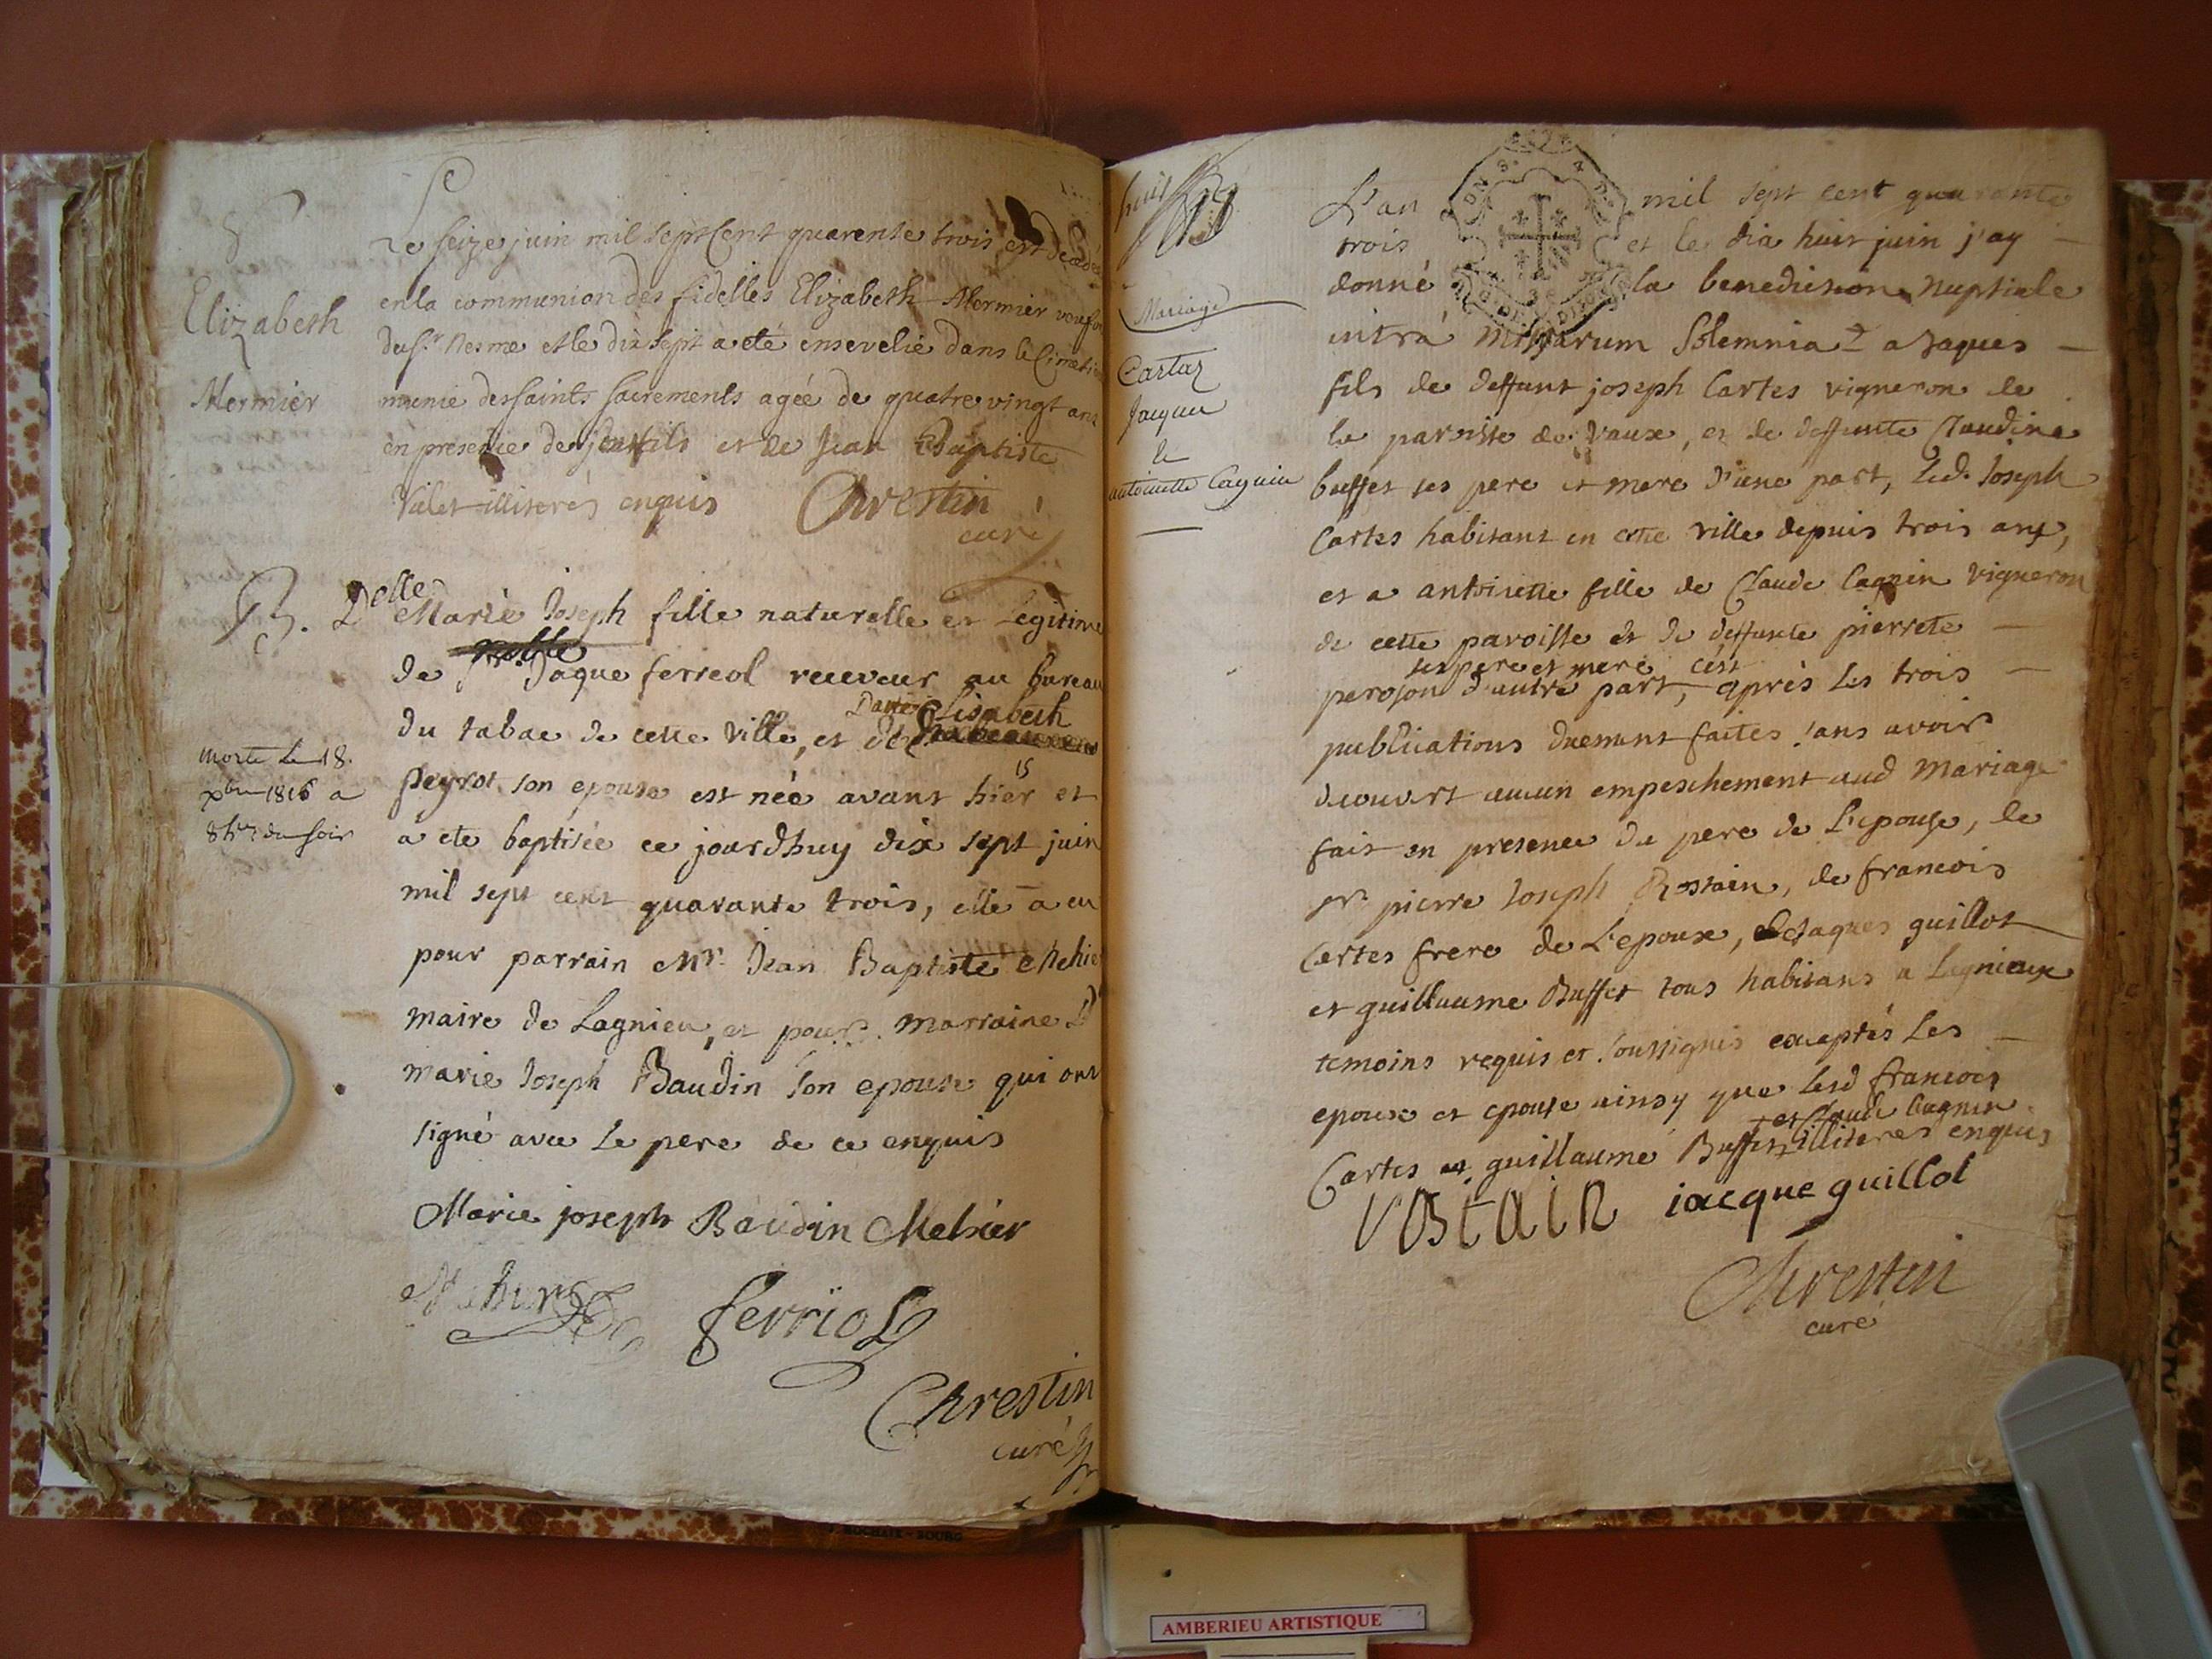 S
Elizabeth
Mermier
Le seize juin mil sept cent quarente trois est decedé
en la communion des fidelles Elizabeth Mermier
du Sr. Nesme et le dix sept a eté ensevelie dans le Cimeti
munie des saints sacrements agée de quatre vingt ans
en presence de son fils et de Jean Baptiste
Valet illiterés enquis Chrestin
curé
B.
morte Le 18.
xbre 1816 a
8 hres du soir
Delle Marie Joseph fille naturelle et Legitime
noble
de Sr. Jaque ferreol receveur au bureau
du tabac de cette ville, et de
Elisabeth
peyrot son epouse est née avant hier et
15
a ete baptisée ce jourdhuy dix sept juin
mil sept cent quarante trois, elle a eu
pour parrain Mr. Jean Baptiste Mehie
maire de Lagnieu, et pour marraine D
marie Joseph Baudin son epouse qui ont
signé avec le pere de ce enquis
Marie joseph Baudin Mehier
ferriol
Chrestin
curé
huit
Mariage
Cartaz
Jacque
le
antoinette Cagnin
L'an mil sept cent quarante
trois et le dix huit juin j'ay
donné la benediction nuptiale
intrà missarum solemnia a Jaques
fils de deffunt joseph Cartes vigneron de
la paroisse de Vaux, et de deffunte Claudine
buffet ses pere et mere d'une part, Led. Joseph
Cartes habitant en cette ville depuis trois ans,
et a antoinette fille de Claude Cagnin vigneron
de cette paroisse et de deffunte pierrete
ses pere et mere cest
peroson d'autre part, après les trois
publications duement faites sans avoir
decouvert aucun empeschement aud mariage
fait en presence du pere de L'epouse, de
sr. pierre Joseph Rostain, de francois
Cartes frere de L'epoux, de Jaques guillot
et guillaume Buffet tous habitans a Lagnieux
temoins requis et soussignés exceptés Les
epoux et epouse ainsy que lesd francois
et Claude Cagnin
Cartes et guillaume Buffet illiterés enquis
rostain iacque guillot
Chrestin
curé
J. ROCHAIX - BOURG
AMBERIEU ARTISTIQUE